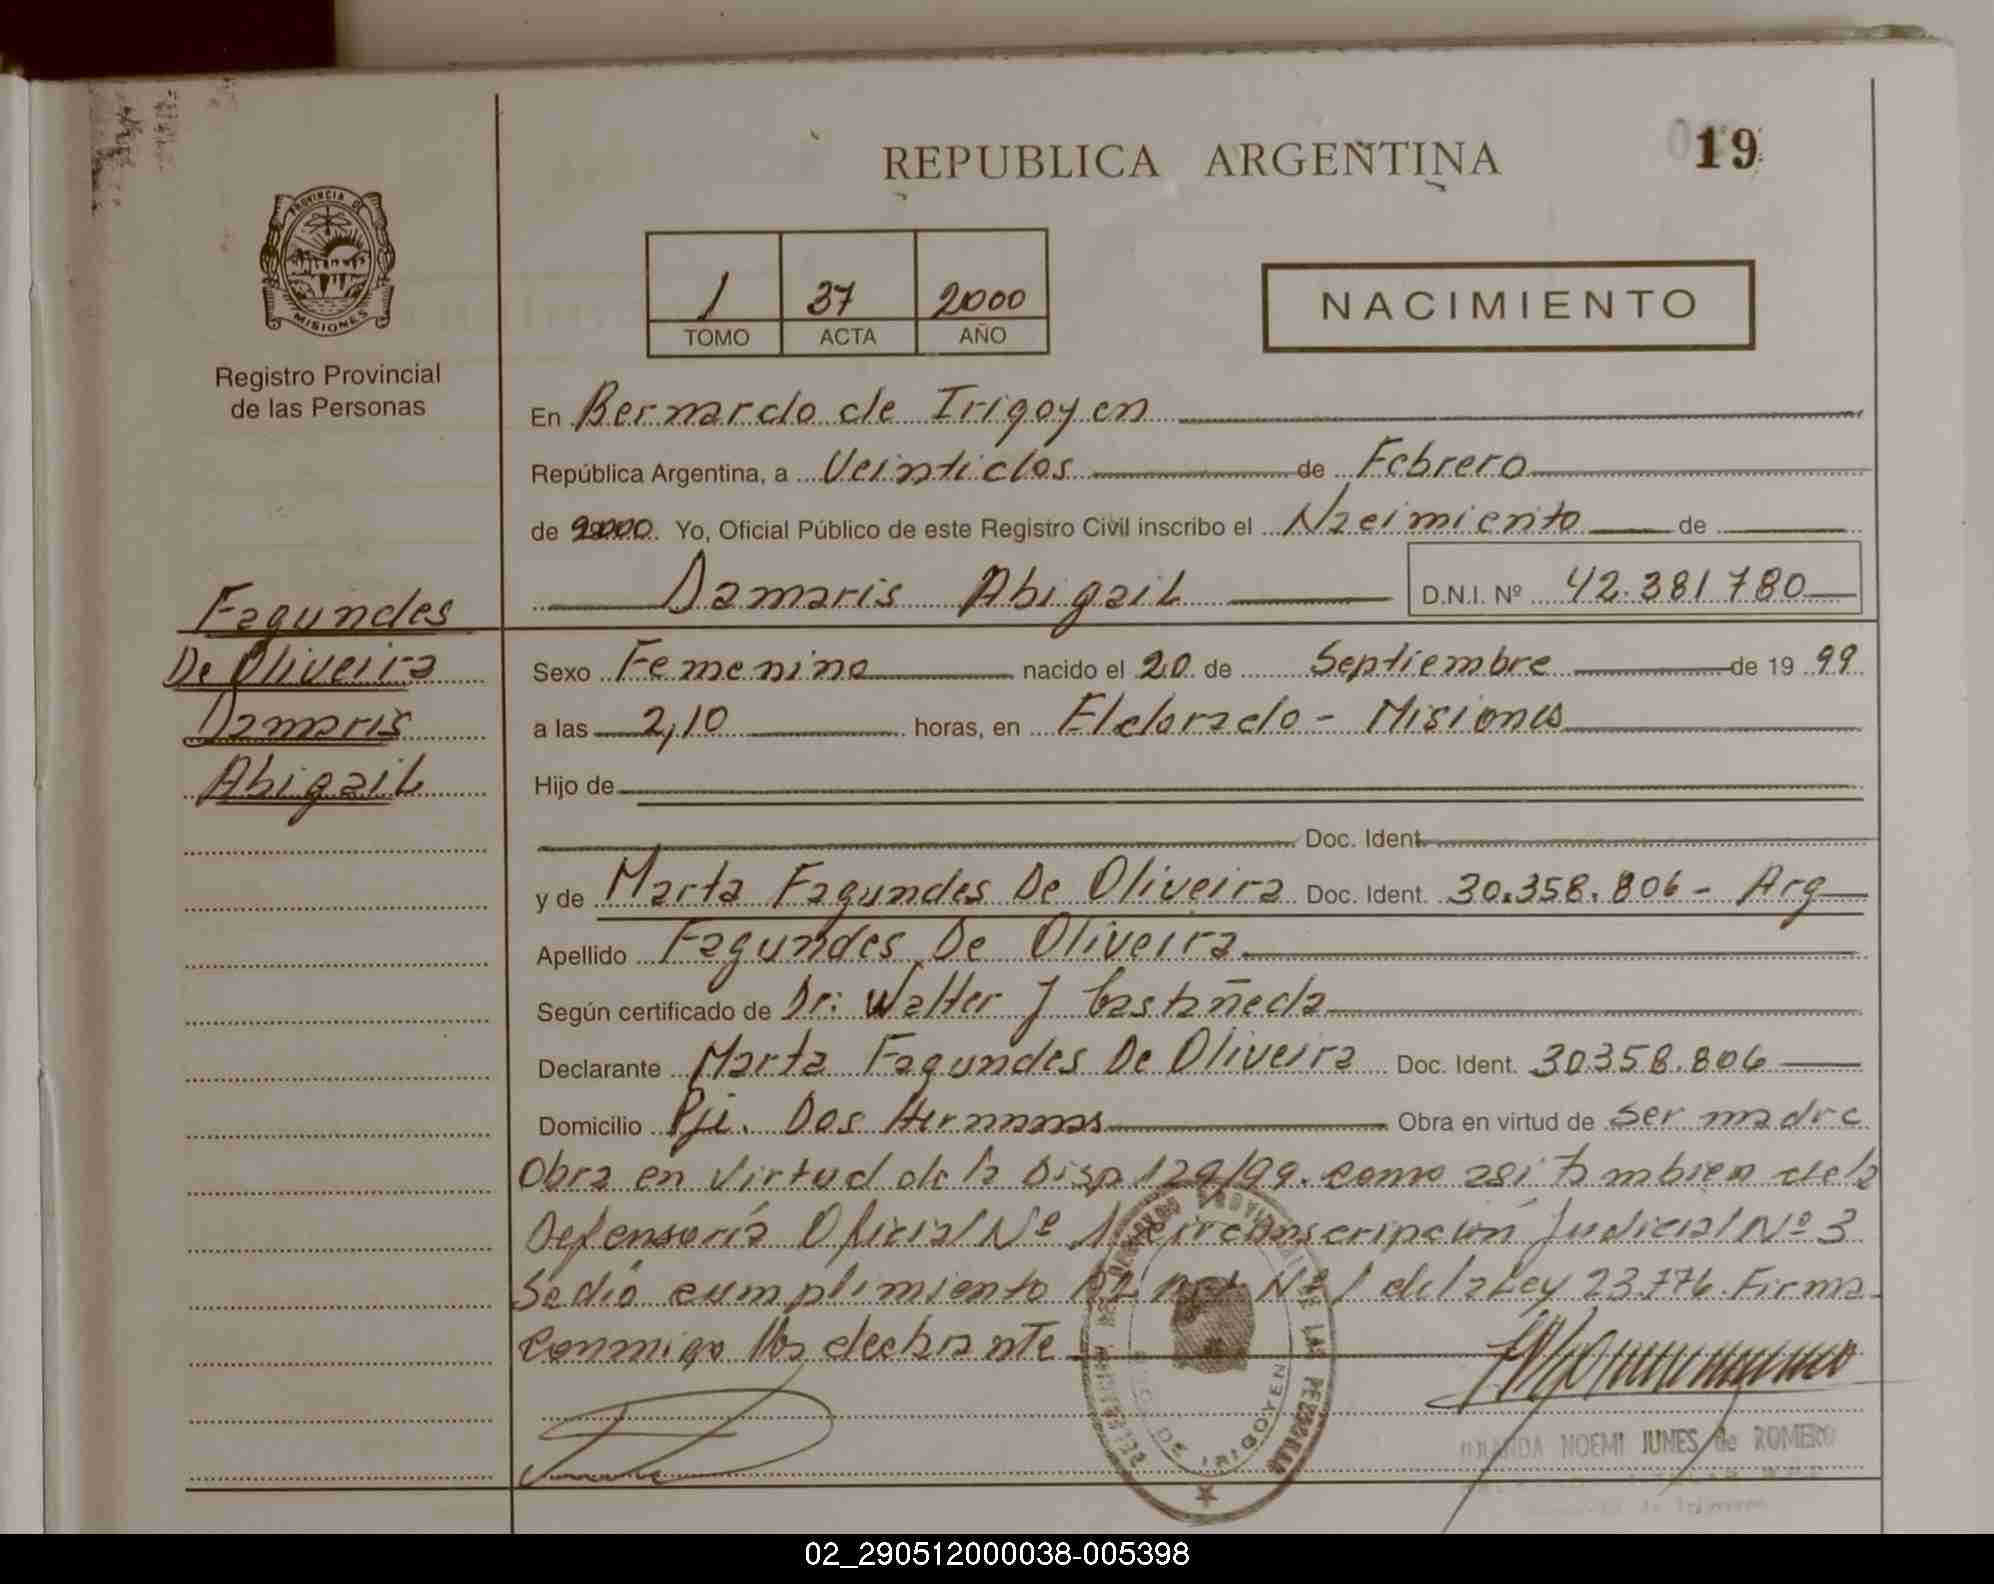 REPUBLICA ARGENTINA
19
PROVINCIA DE
MISIONES
Registro Provincial
de las Personas
1 37 2000
TOMO ACTA AÑO
NACIMIENTO
En Bernardo de Irigoyen
República Argentina, a Veintidos de Febrero
de 2000. Yo, Oficial Público de este Registro Civil inscribo el Nacimiento de
Damaris Abigail D.N.I. Nº 42.381780
Fagundes
De Oliveira
Damaris
Abigail
Sexo Femenino nacido el 20 de Septiembre de 19 99
a las 2,10 horas, en Eldorado - Misiones
Hijo de
Doc. Ident.
y de Marta Fagundes De Oliveira Doc. Ident. 30.358.806 - Arg
Apellido Fagundes De Oliveira
Según certificado de Dr: Walter J Castañeda
Declarante Marta Fagundes De Oliveira Doc. Ident. 30358.806
Domicilio Pje. Dos Hermanas Obra en virtud de Ser madre
Obra en virtud de la Disp 129/99. como asi tambien de la
Defensoría Oficial Nº 1 circonscripción Judicial Nº 3
Sedió cumplimiento AL Art Nº 1 de la Ley 23.776. Firma
conmigo la declarante
DE IRIGOYEN
NOEMI JUNES de ROMERO
02_290512000038-005398